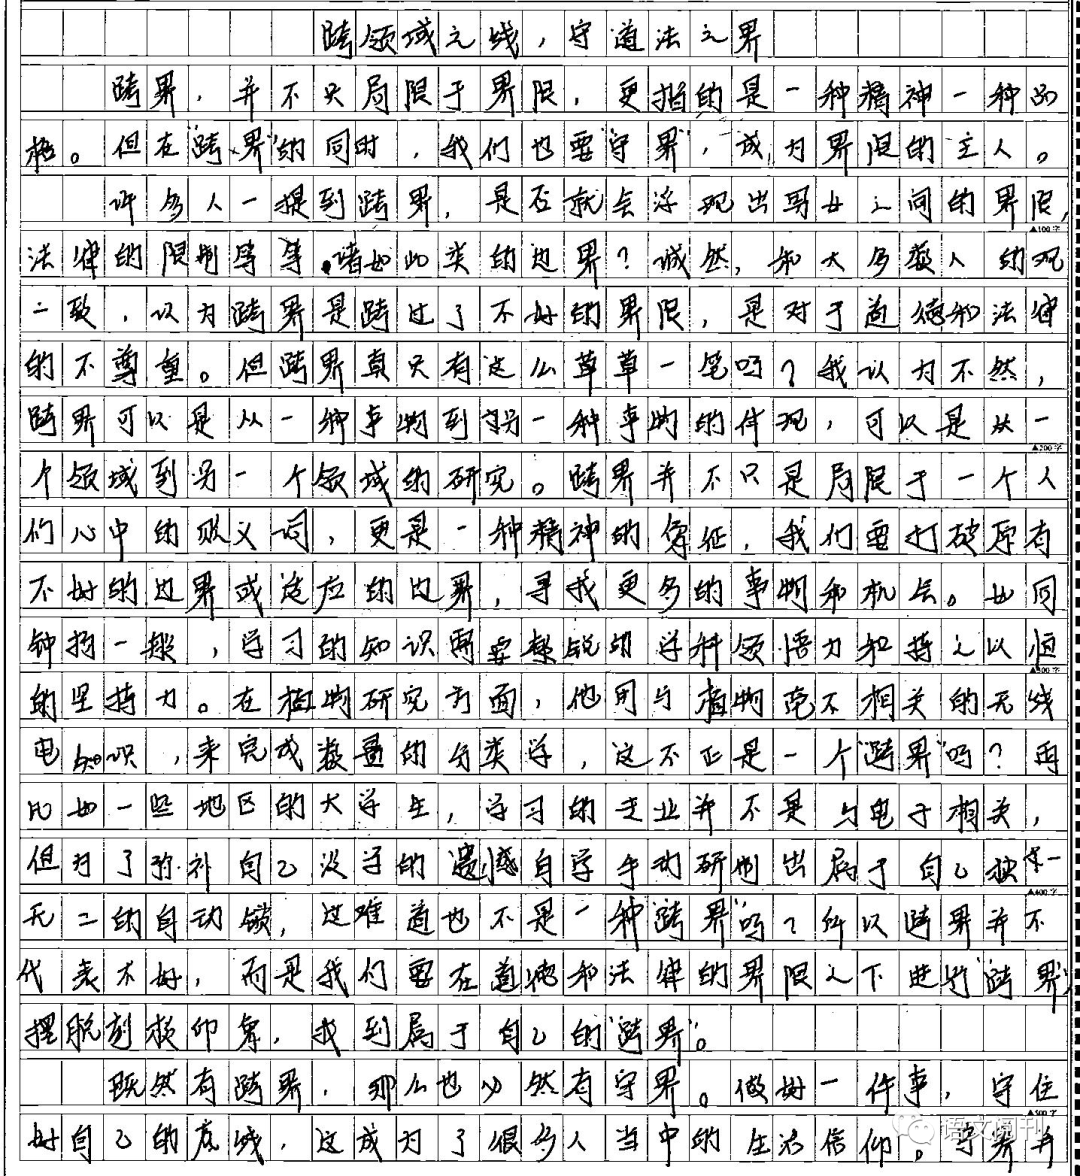 跨领域之线，守道法之界
跨界，并不只局限于界限，更指的是一种精神一种品
格。但在"跨界"的同时，我们也要"守界"，成为界限的主人。
许多人一提到跨界，是否就会浮现出男女之间的界限，
▲100字
法律的限制等等.诸如此类的边界？诚然，和大多数人的观
一致，以为跨界是跨过了不好的界限，是对于道德和法律
的不尊重。但跨界真只有这么草草一笔吗？我以为不然，
跨界可以是从一种事物到另一种事物的体现，可以是从一
▲200字
个领域到另一个领域的研究。跨界并不只是局限于一个人
们心中的贬义词，更是一种精神的象征，我们要打破原有
不好的边界或适应的边界，寻找更多的事物和机会。如同
钟扬一般，学习的知识需要敏锐的学科领悟力和持之以恒
▲300字
的坚持力。在植物研究方面，他用与植物毫不相关的无线
电知识，来完成数量的分类学，这不正是一个"跨界"吗？再
比如一些地区的大学生，学习的专业并不是与电子相关，
但为了弥补自己没学的遗憾自学手动研制出属于自己独一
▲400字
无二的自动锁，这难道也不是一种"跨界"吗？所以跨界并不
代表不好，而是我们要在道德和法律的界限之下进行"跨界"，
摆脱刻板印象，找到属于自己的"跨界"。
既然有跨界，那么也必然有守界。做好一件事，守住
▲500字
好自己的底线，这成为了很多人当中的生活信仰。守界并
语文周刊